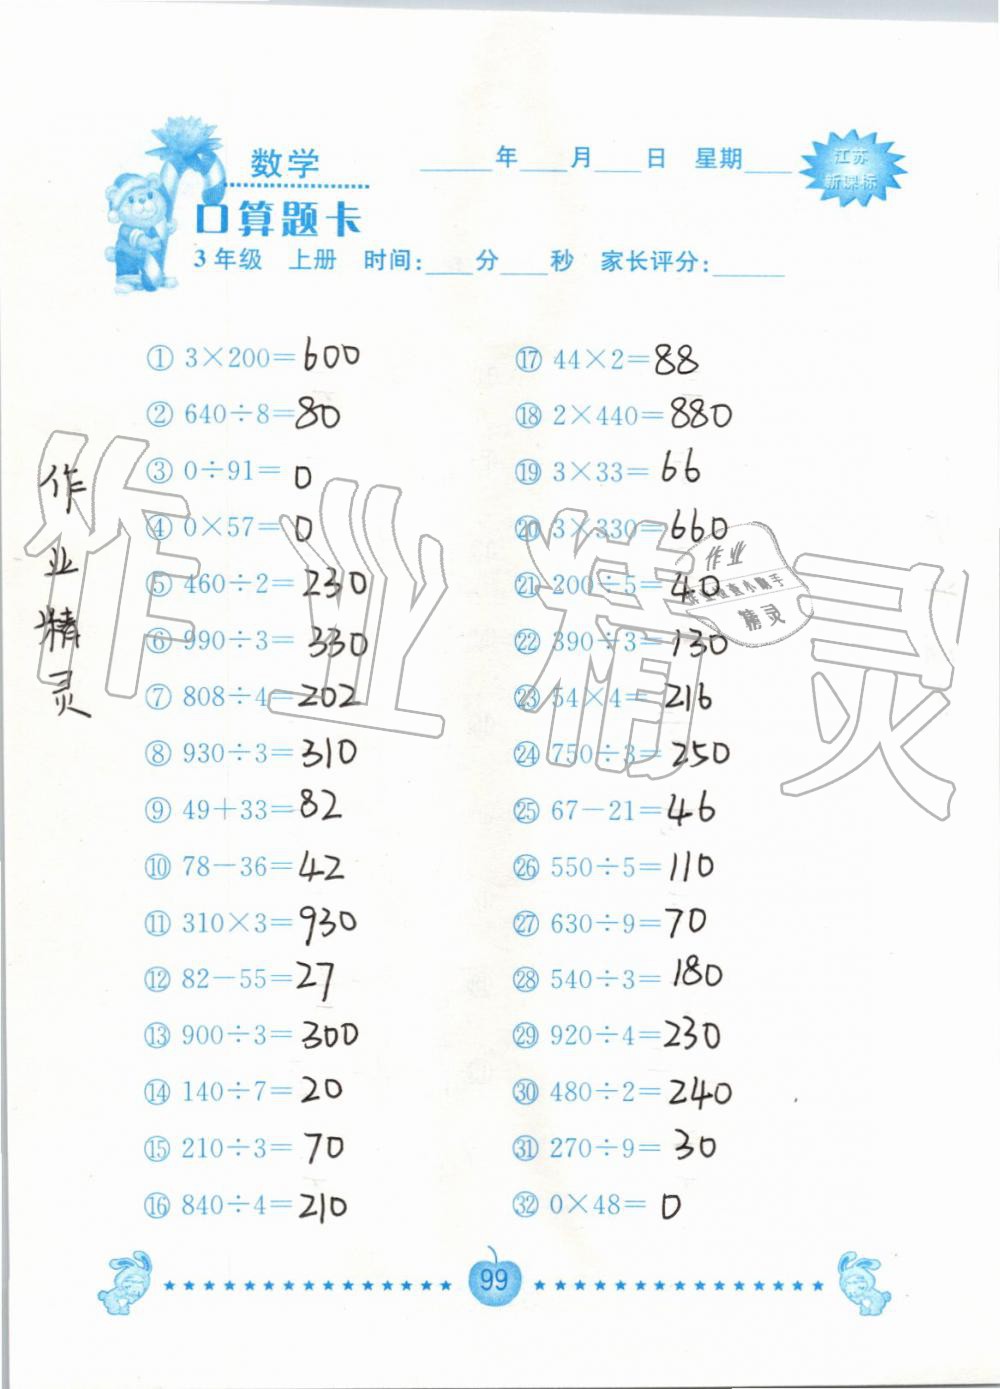 数学
____年____月____日 星期____
江苏
新课标
口算题卡
3年级 上册 时间:____分____秒 家长评分:____
① 3×200=600
② 640÷8=80
③ 0÷91=0
④ 0×57=0
⑤ 460÷2=230
⑥ 990÷3=330
⑦ 808÷4=202
⑧ 930÷3=310
⑨ 49+33=82
⑩ 78-36=42
⑪ 310×3=930
⑫ 82-55=27
⑬ 900÷3=300
⑭ 140÷7=20
⑮ 210÷3=70
⑯ 840÷4=210
⑰ 44×2=88
⑱ 2×440=880
⑲ 3×33=66
⑳ 3×330=660
㉑ 200÷5=40
㉒ 390÷3=130
㉓ 54×4=216
㉔ 750÷3=250
㉕ 67-21=46
㉖ 550÷5=110
㉗ 630÷9=70
㉘ 540÷3=180
㉙ 920÷4=230
㉚ 480÷2=240
㉛ 270÷9=30
㉜ 0×48=0
作业精灵
作业精灵
作业
精灵
99